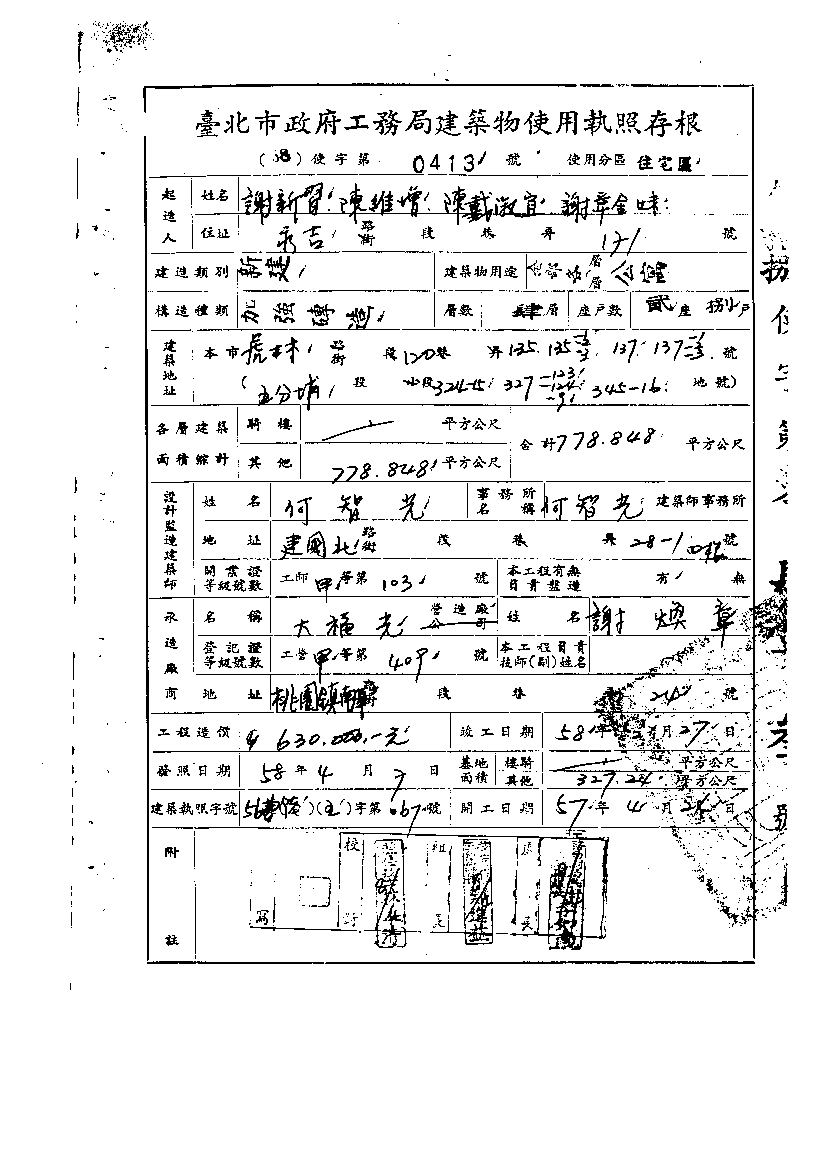 臺北市政府工務局建築物使用執照存根
(58) 使字第 0413 號 使用分區 住宅區
起造人 姓名 謝新習 陳維增 陳戴淑宜 謝章金
住址 永吉 路街 段 巷 弄 171 號
建造類別 新建 建築物用途 層層 公寓
構造種類 加強磚造 層數 肆層 座戶數 貳座 捌戶
建築地址 本市 虎林 路街 段 120 巷 弄 135. 135 137. 137 號
(五分埔 段 小段 324-15 327 -123 -124 345-16 地號)
各層建築面積綜計 騎樓 平方公尺 合計 778.848 平方公尺
其他 778.848 平方公尺
設計監造建築師 姓名 何智光 事務所名稱 何智光 建築師事務所
地址 建國北 路街 段 巷 弄 28-1 號 四樓
開業證等級號數 工師 甲 等第 103 號 本工程有無負責監造 有 無
承造廠商 名稱 大福光 營造廠公司 姓名 謝煥章
登記證等級號數 工營 甲 等第 409 號 本工程負責技師(副)姓名
地址 桃園鎮 段 巷 24 號
工程造價 630.000.-元 竣工日期 58 年 2 月 27 日
發照日期 58 年 4 月 7 日 基地面積 樓騎 平方公尺
其他 327.24 平方公尺
建築執照字號 56 字第 067 號 開工日期 57 年 4 月 日
附註
校對 組長 處長
寫
捌使字第 號